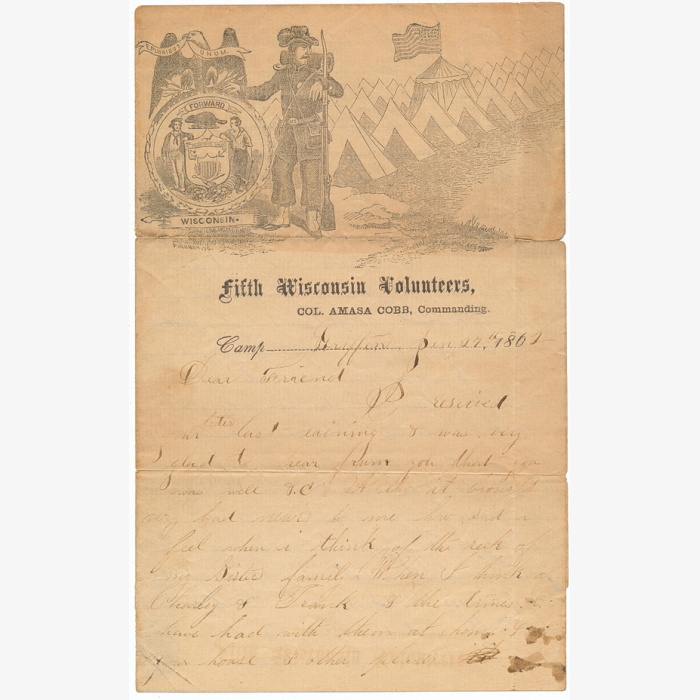 E PLURIBUS UNUM.
FORWARD
WISCONSIN.
Fifth Wisconsin Volunteers,
COL. AMASA COBB, Commanding.
Camp Griffin Jan 27th 1862
Dear Friend
I reseived
your letter last evining & was very
glad to hear from you that you
was well &.C. it
very bad news to me how sad i
feel when i think of the sick of
my Sister family When I think of
Charley & Frank & the times i
have had with them at home & in
your house & other places